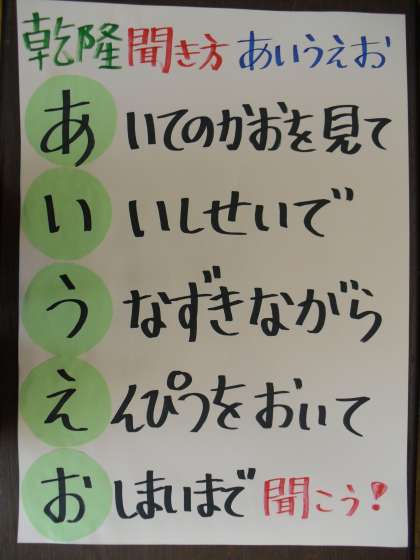 乾隆聞き方あいうえお
あいてのかおを見て
いいしせいで
うなずきながら
えんぴつをおいて
おしまいまで聞こう！